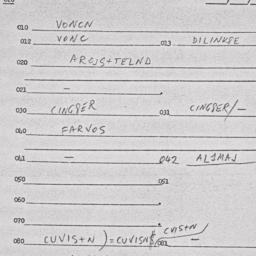 010 VONCN
012 VONC 013 DILINKSE
020 ARCJS+TELND
021 –
030 CINGSER 031 CINGSER/–
040 FARVOS
041 – 042 ALIMAJ
050 051
060
070
080 CUVIS+N)=CUVISN 081 CVIS+N –